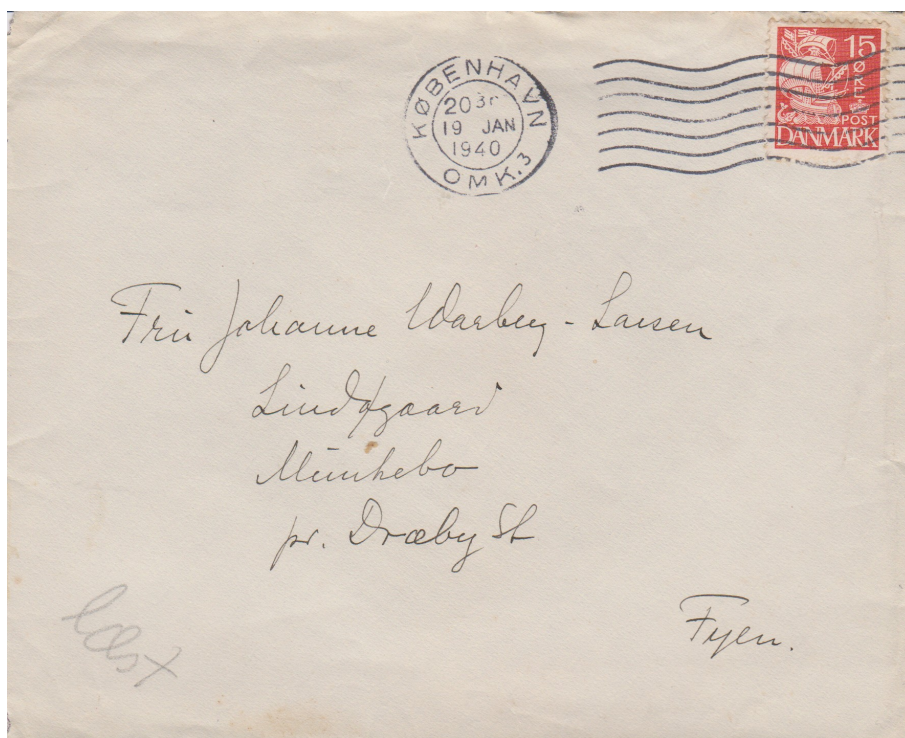 KØBENHAVN
20 3
19 JAN
1940
OMK. 3
15
ØRE
POST
DANMARK
Fru Johanne Warberg-Larsen
Lindøgaard
Munkebo
pr. Dræby St
Fyen.
læst